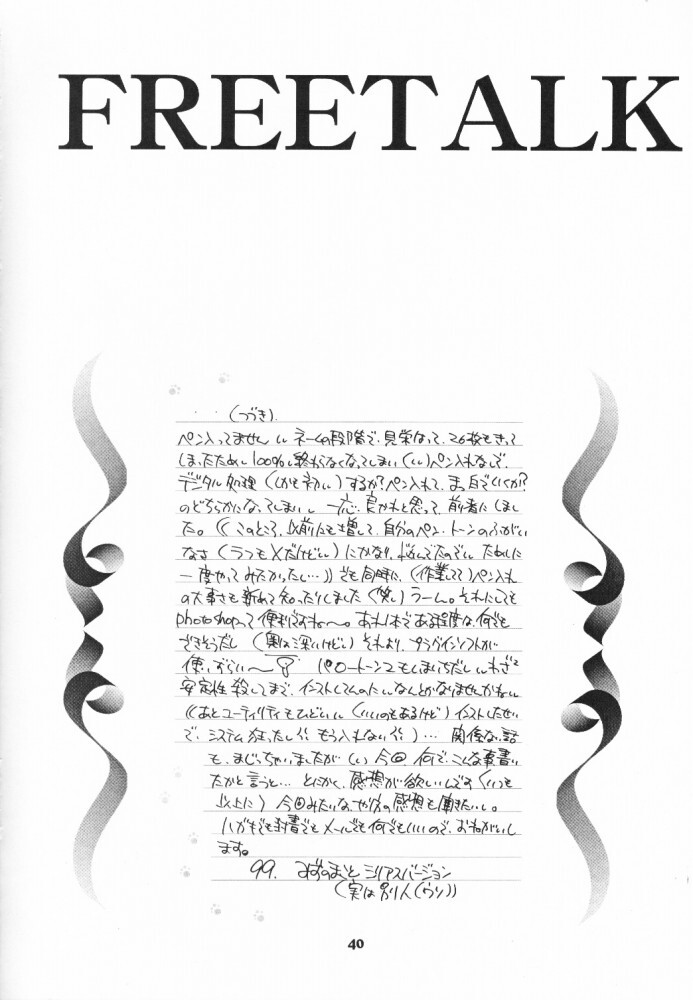 FREETALK
(つづき).
ペン入ってません ネームの段階で、見栄はって、26枚もきって
しまったために100%終わらなくなってしまい(い)ペン入れなしで、
デジタル処理(しかも初い)するか?ペン入れて、まっ白でいくか?
のどちらかになってしまい 一応、良かれと思って、前者にしまし
た。((このところ、以前にも増して、自分のペン、トーンのふがい
なさ(うつもXだけどい)にかなり、悩んでたので、ためしに
一度やってみたかったし…))でも同時に、(作業してて)ペン入れ
の大事さも新めて知ったりしました(笑)うーん。それにしても
photoshopって便利ですね〜。あれ1本である程度は何でも
できそうだし(奥は深いけどい)それより、プラグインソフトが
使いづらい〜 パワートーン2もしまいちだし わざと
安定性殺してまで、インストしてんのに なんとかなりませんかね
((あとユーティリティもひどい(いいのもあるけど)インストしたせい
で、システム狂ったし もう入れない)… 関係ない話
も、まじっちゃいましたが(い)今回何で、こんな事書い
たかと言うと… とにかく、感想が欲しいんです(いつも
以上に)今回みたいなやり方の感想も聞きたいし。
ハガキでも封書でもメールでも何でもいいので、おねがいし
ます。
99. みずのまこと シリアスバージョン
(実は別人(ウソ))
40